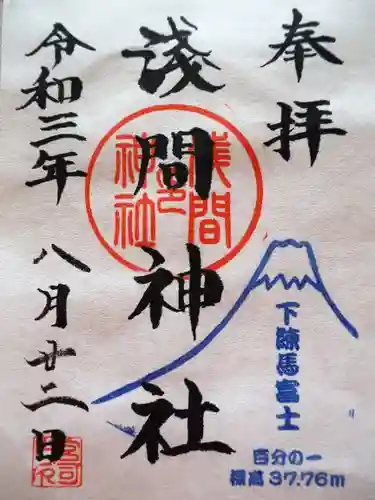 奉拝
浅間神社
令和三年
八月廿二日
浅間
神社
下陳馬富士
百分の一
標高37.76m